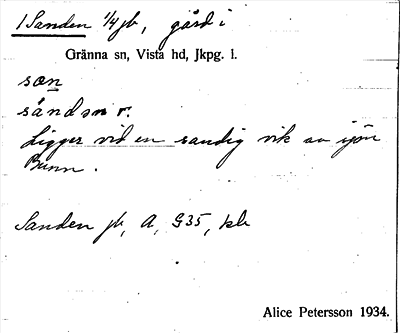 1 Sanden 1/4 jb, gård i
Gränna sn, Vista hd, Jkpg. l.
san
såndan r.
Ligger vid en sandig vik av sjön
Bunn.
Sanden jb, A, G35, kb
Alice Petersson 1934.